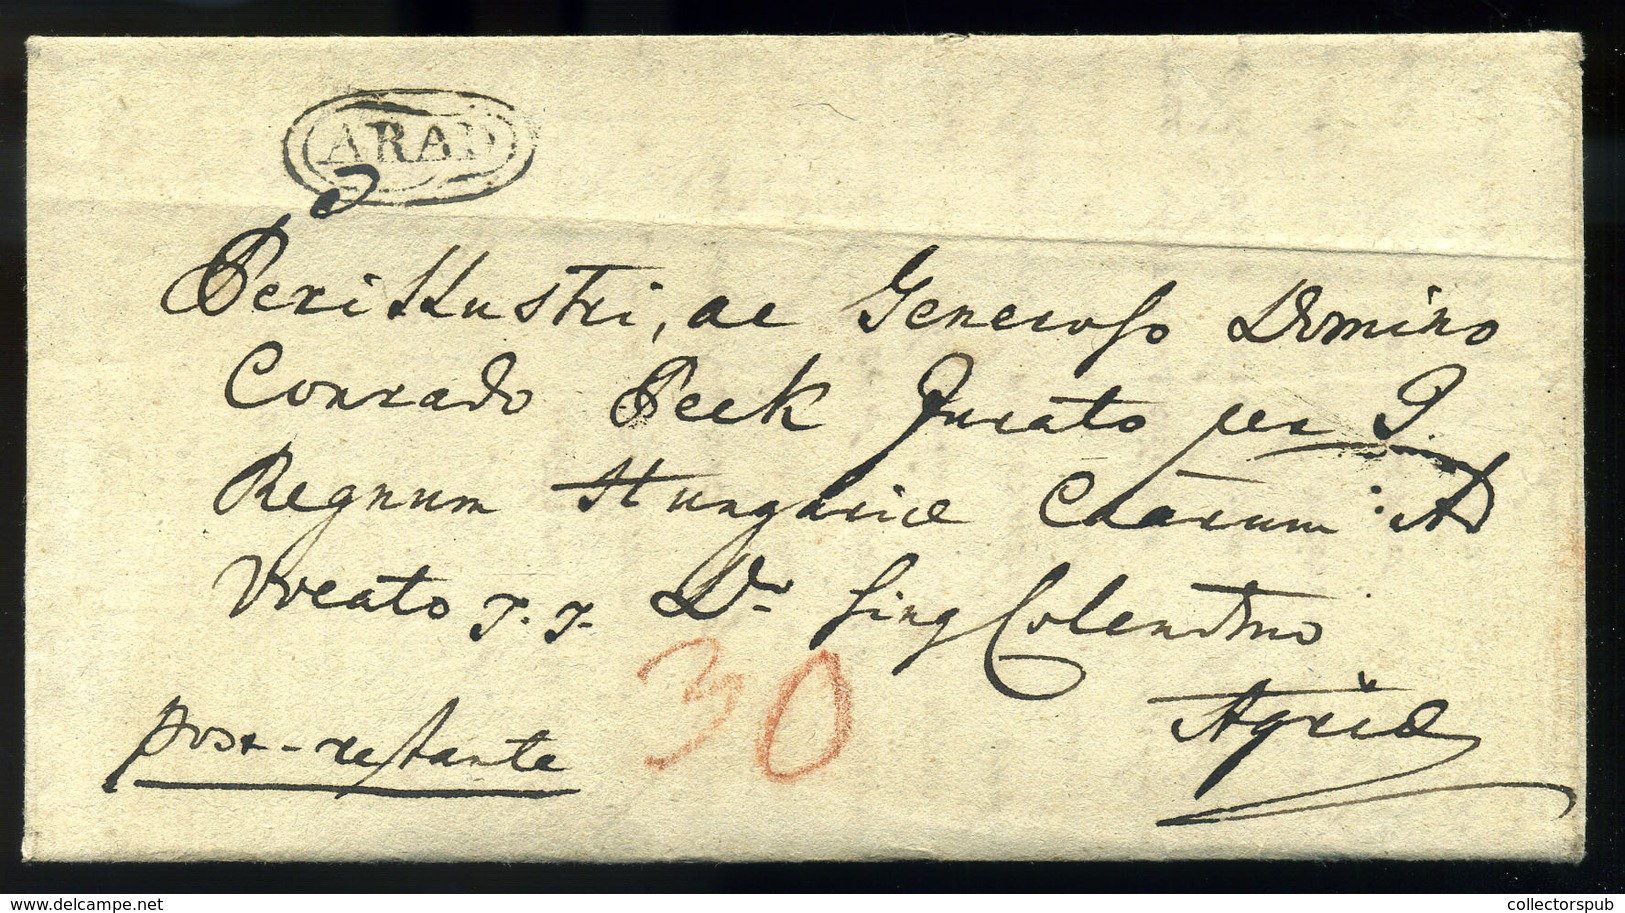 ARAD
Perillustri, ac Generoso Domino
Conrado Peck Jurato per J.
Regnum Hungariæ Caarum : Ad
vocato T. T. Dno Sing Colendmo
Agriæ
post-restante
30
collectorspub